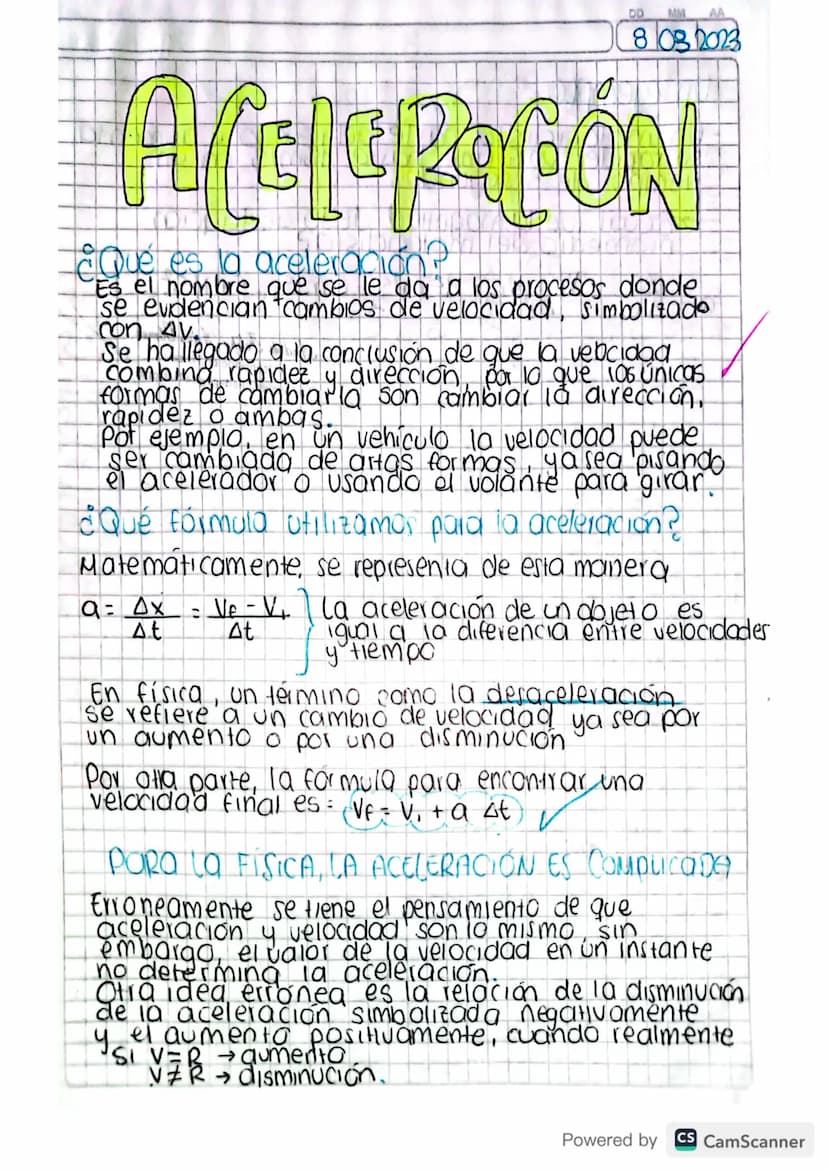 DD MM AA
8 03 2023
ACELERACIÓN
¿Qué es la aceleración?
Es el nombre que se le da a los procesos donde
se evidencian cambios de velocidad, simbolizado
con ΔV.
Se ha llegado a la conclusión de que la velocidad
combina rapidez y dirección por lo que las únicas
formas de cambiarla son cambiar la dirección,
rapidez o ambas.
Por ejemplo, en un vehículo la velocidad puede
ser cambiada de artas formas, ya sea pisando
el acelerador o usando el volante para girar.
¿Qué fórmula utilizamos para la aceleración?
Matemáticamente, se representa de esta manera
a = Δx = VF - Vi } La aceleración de un objeto es
Δt Δt igual a la diferencia entre velocidades
y tiempo
En física, un término como la desaceleración
se refiere a un cambio de velocidad ya sea por
un aumento o por una disminución
Por otra parte, la fórmula para encontrar una
velocidad final es: VF = Vi + a Δt
PARA LA FÍSICA, LA ACELERACIÓN ES COMPLICADA
Erroneamente se tiene el pensamiento de que
aceleración y velocidad son lo mismo, sin
embargo, el valor de la velocidad en un instante
no determina la aceleración.
Otra idea errónea es la relación de la disminución
de la aceleración simbolizada negativamente
y el aumento positivamente, cuando realmente
si V=R → aumento
V≠R → disminución.
Powered by CS CamScanner